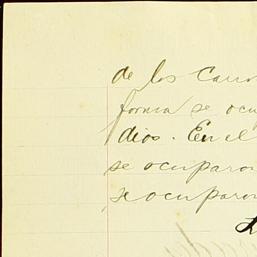 de los Carro
forma se ocu
dios. En el
se ocuparo
se ocuparon